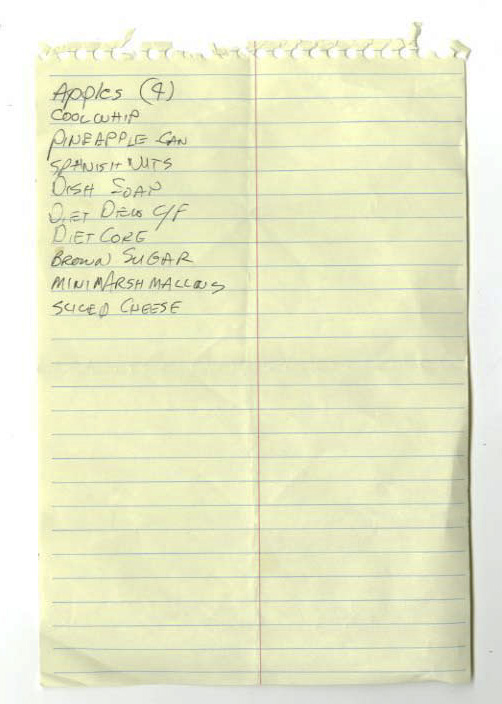 Apples (4)
COOLWHIP
PINEAPPLE CAN
SPANISH NUTS
DISH SOAP
DIET DEW C/F
DIET COKE
BROWN SUGAR
MINI MARSHMALLOWS
SLICED CHEESE